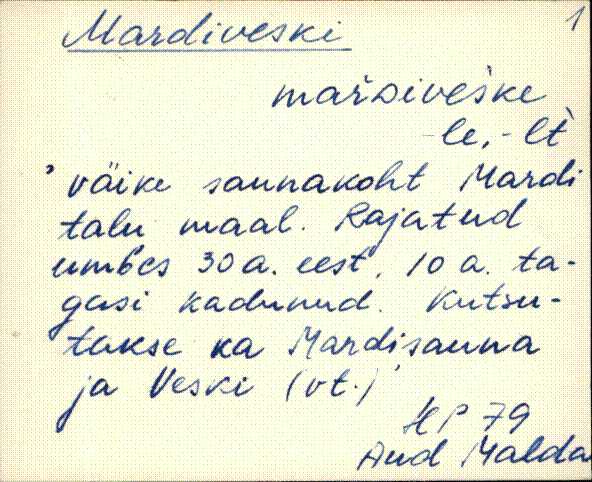 Mardiveski 1
marDiveške
-le, -lt
'väike saunakoht Mardi
talu maal. Rajatud
umbes 30 a. eest, 10 a. ta-
gasi kadunud. Kutsu-
takse ka Mardisauna
ja Veski (vt.)'
KP 79
Aud Malda